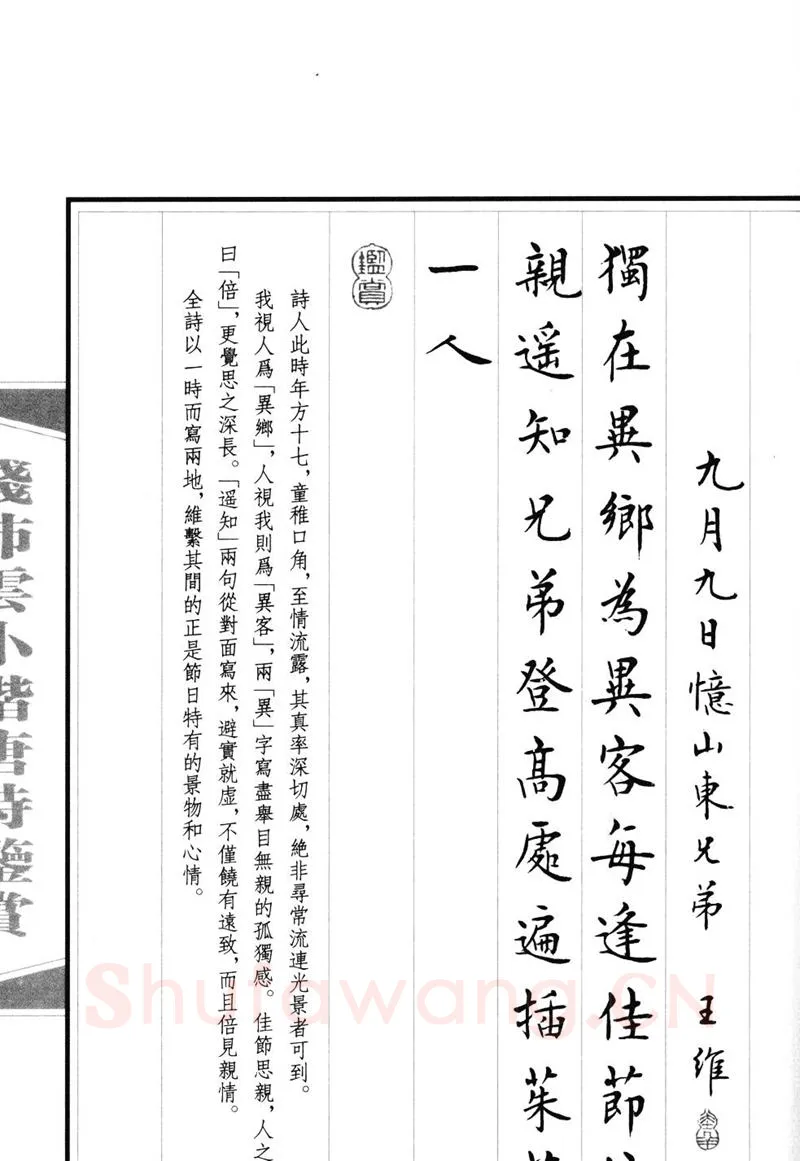 九月九日憶山東兄弟 王維
獨在異鄉為異客每逢佳節
親遥知兄弟登高處遍插茱
一人
鑑賞
詩人此時年方十七，童稚口角，至情流露，其真率深切處，絶非尋常流連光景者可到。
我視人爲「異鄉」，人視我則爲「異客」，兩「異」字寫盡舉目無親的孤獨感。佳節思親，人之
曰「倍」，更覺思之深長。「遥知」兩句從對面寫來，避實就虚，不僅饒有遠致，而且倍見親情。
全詩以一時而寫兩地，維繫其間的正是節日特有的景物和心情。
錢沛雲小楷唐詩鑒賞
Shufawang.CN